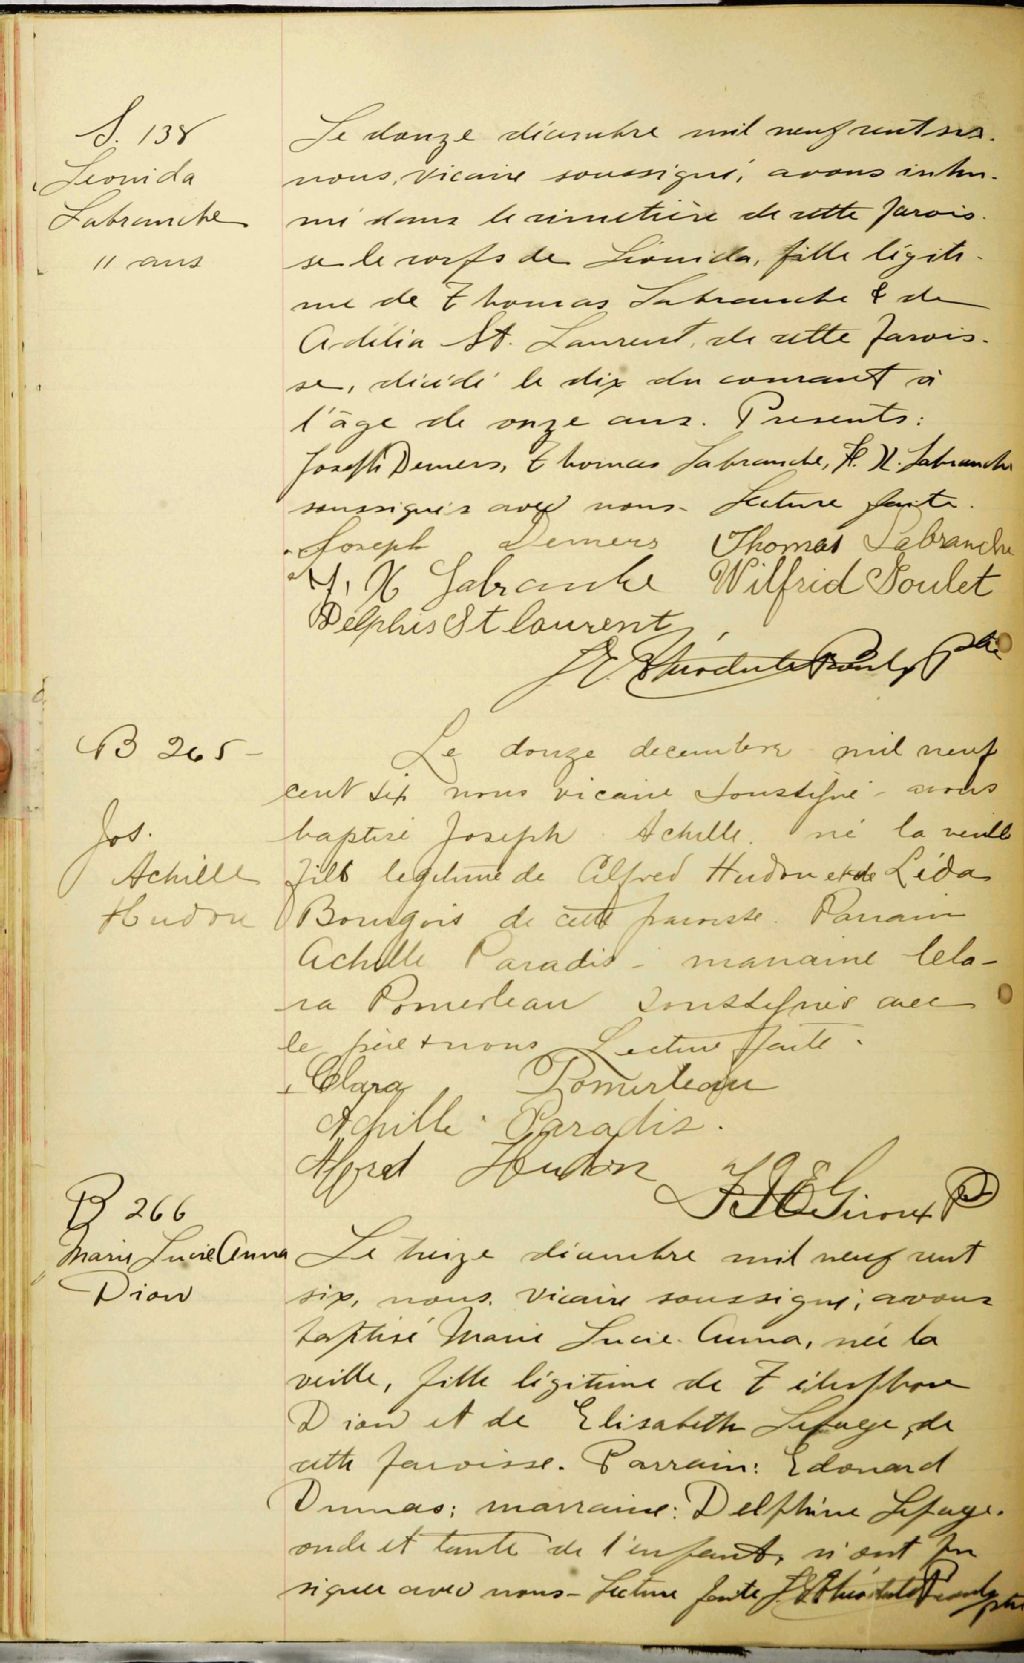 S. 138
Leonida
Labranche
11 ans
Le douze décembre mil neuf cent six.
nous, vicaire soussigné, avons inhu-
mé dans le cimetière de cette parois-
se le corps de Léonida, fille légiti-
me de Thomas Labranche & de
Adélia St. Laurent, de cette parois-
se, décédé le dix du courant à
l'âge de onze ans. Presents:
Joseph Demers, Thomas Labranche, F. X. Labranche
soussignés avec nous. Lecture faite.
Joseph Demers Thomas Labranche
F. X Labranche Wilfrid Goulet
Delphis St laurent
J E Ptre
B 265 -
Jos.
Achille
Hudon
Le douze decembre mil neuf
cent six nous vicaire soussigné - avons
baptisé Joseph Achille. né la veille
fils legitime de Alfred Hudon et de Léda
Bourgois de cette paroisse. Parrain
Achille Paradis - marraine Cla-
ra Pomerleau soussignés avec
le père + nous Lecture faite.
Clara Pomerleau
Achille Paradis.
Alfred Hudon F J E Giroux P
B 266
Marie Lucie Anna
Dion
Le treize décembre mil neuf cent
six, nous, vicaire soussigné, avons
baptisé Marie Lucie Anna, née la
veille, fille légitime de Télesphore
Dion et de Elisabeth Lepage, de
cette paroisse. Parrain: Edouard
Dumas; marraine: Delphine Lepage.
oncle et tante de l'enfant, n'ont pu
signer avec nous - Lecture faite J. E ptre